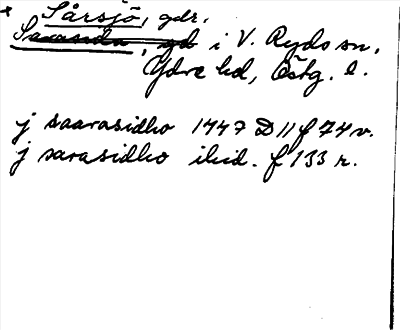 * Sårsjö, gdr.
Sarasida, gd i V. Ryds sn,
Ydre hd, Östg. l.
j saarasidho 1447 D 11 f 74 v.
j sarasidho ibid. f 133 r.